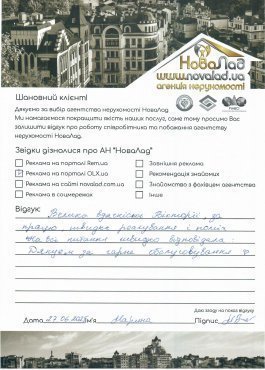 НоваЛад
www.novalad.ua
агенція нерухомості
Шановний клієнт!
Дякуємо за вибір агентства нерухомості НоваЛад.
Ми намагаємося покращити якість наших послуг, саме тому просимо Вас
залишити відгук про роботу співробітника та побажання агентству
нерухомості НоваЛад.
Звідки дізналися про АН "НоваЛад"
Реклама на порталі Rem.ua
Зовнішня реклама
Реклама на порталі OLX.ua
Рекомендація знайомих
Реклама на сайті novalad.com.ua
Знайомство з фахівцем агентства
Реклама в соцмережах
Інше
Відгук:
Велика вдячність Вікторії, за
працю, швидке реагування і поміч
На всі питання швидко відповідала.
Дякуєм за гарне обслуговування
Даю згоду на показ відгуку
Дата 27.06.2023 Ім'я Марина Підпис